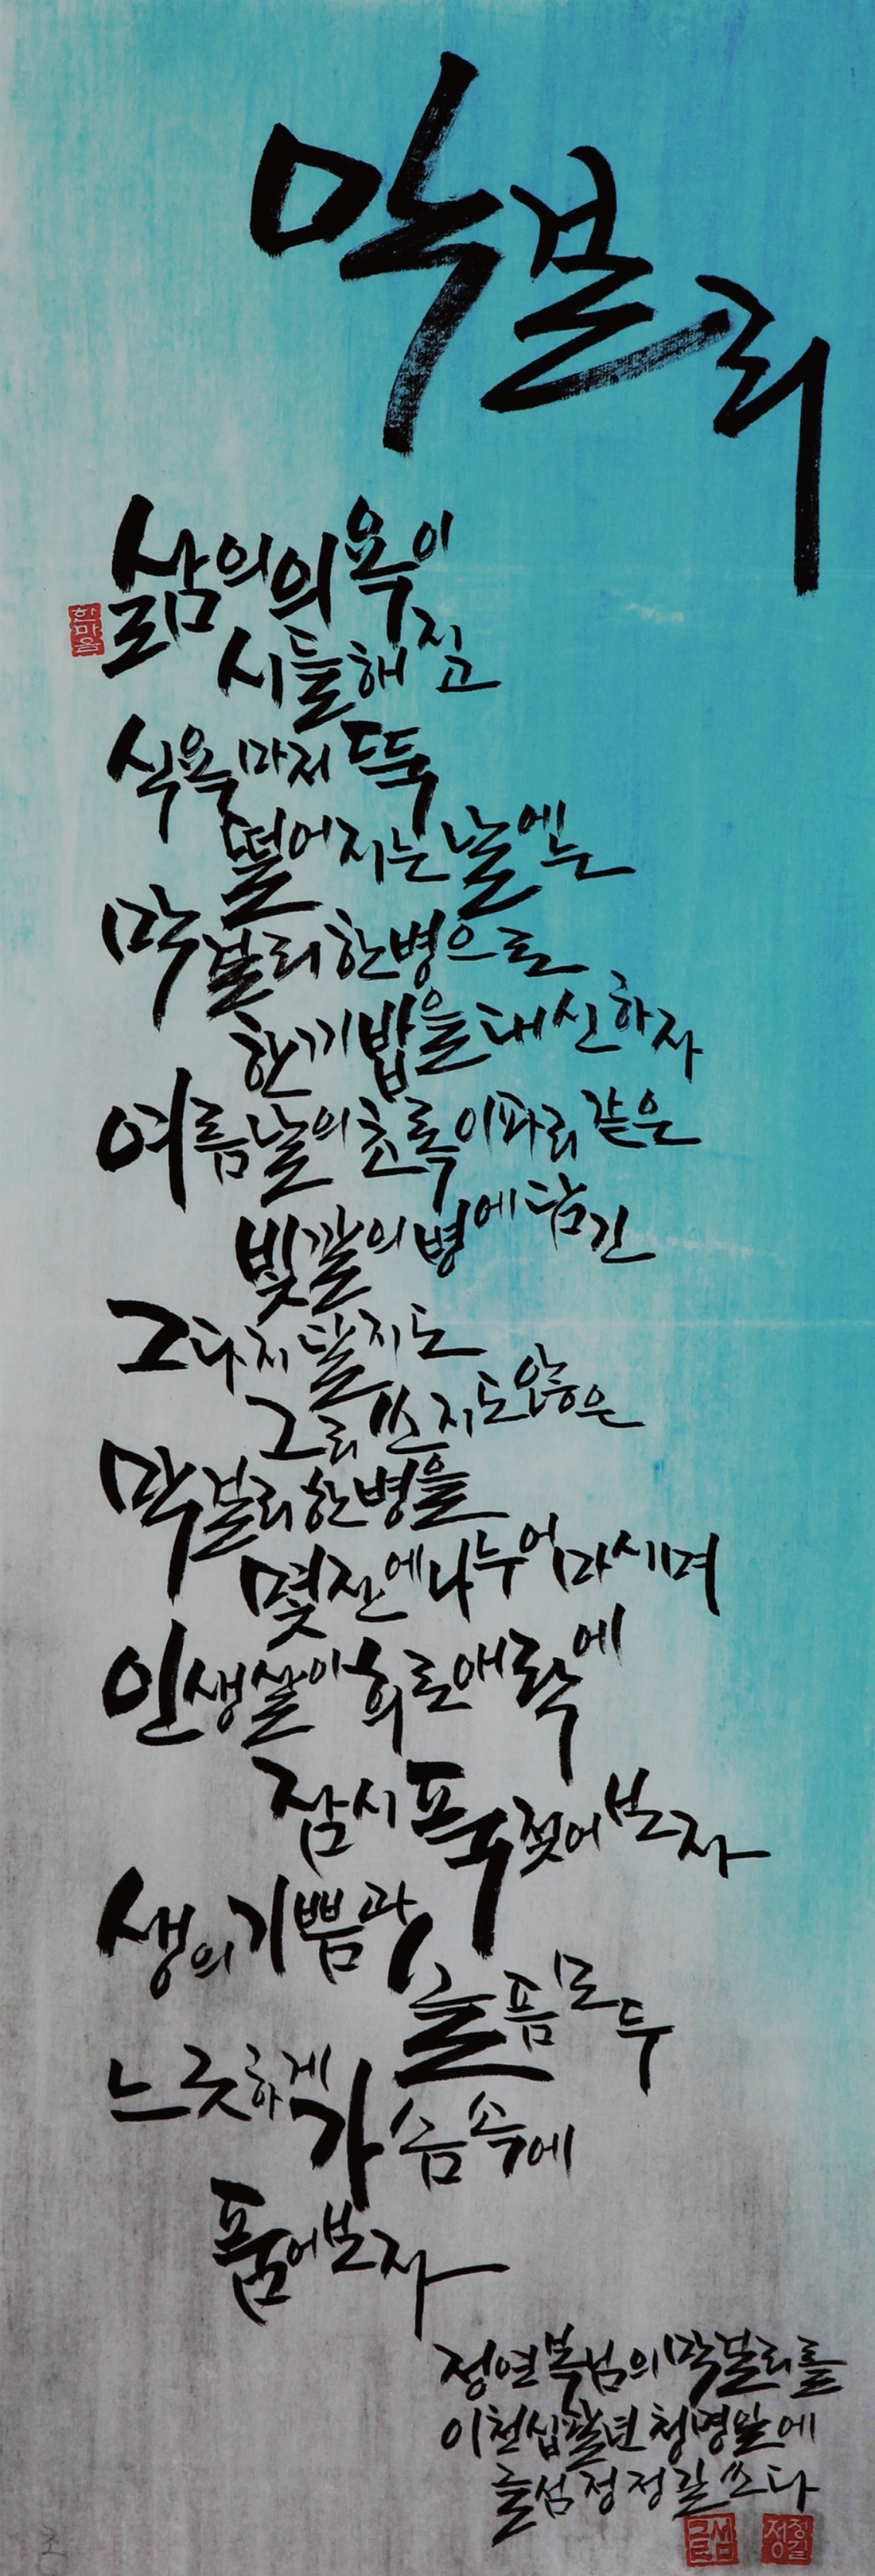 막걸리
삶의 의욕이
한마음
시들해지고
식욕마저 뚝
떨어지는 날에는
막걸리 한 병으로
한끼 밥을 대신하자
여름날의 초록 이파리 같은
빛깔의 병에 담긴
그다지 달지도
그리 쓰지도 않은
막걸리 한 병을
몇 잔에 나누어 마시며
인생살이 희로애락에
잠시 푹 젖어보자
생의 기쁨과
슬픔 모두
느긋하게
가슴속에
품어보자
정연복님의 막걸리를
이천십팔년 청명일에
글섬 정정길 쓰다
글섬
정정길